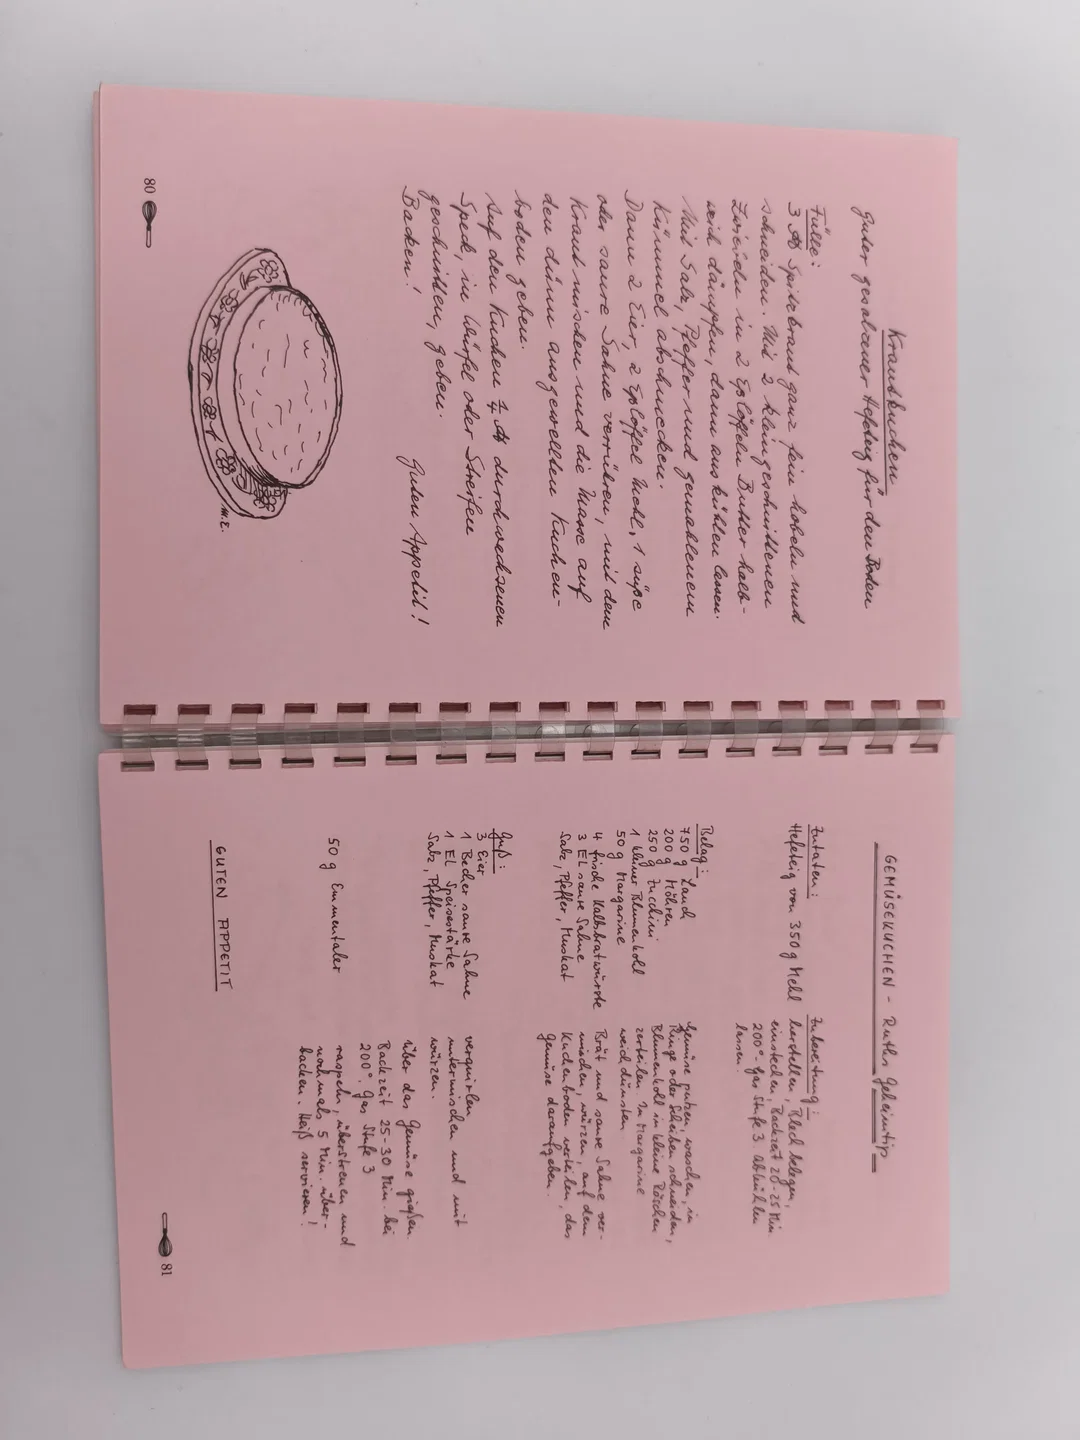 Krautkuchen
Guter gesalzener Hefeteig für den Boden
Fülle:
3 ℔ Spitzkraut ganz fein hobeln und
schneiden. Mit 2 kleingeschnittenen
Zwiebeln in 2 Eßlöffeln Butter halb-
weich dämpfen, dann auskühlen lassen.
Mit Salz, Pfeffer und gemahlenem
Kümmel abschmecken.
Dann 2 Eier, 2 Eßlöffel Mehl, 1 süße
oder saure Sahne verrühren, mit dem
Kraut mischen und die Masse auf
den dünn ausgewellten Kuchen-
boden geben.
Auf den Kuchen ¼ ℔ durchwachsenen
Speck, in Würfel oder Streifen
geschnitten, geben.
Backen!
Guten Appetit!
M.E.
80
GEMÜSEKUCHEN - Ruths Geheimtip
Zutaten:
Hefeteig von 350 g Mehl
Zubereitung:
herstellen, Blech belegen,
einstechen, Backzeit 20-25 Min.
200°- Gas Stufe 3 abkühlen
lassen.
Belag:
750 g Lauch
200 g Möhren
250 g Zucchini
1 kleiner Blumenkohl
50 g Margarine
Gemüse putzen, waschen, in
Ringe oder Scheiben schneiden,
Blumenkohl in kleine Röschen
zerteilen. In Margarine
weichdünsten.
4 frische Kalbsbratwürste
3 EL saure Sahne
Salz, Pfeffer, Muskat
Brät und saure Sahne ver-
mischen, würzen, auf dem
Kuchenboden verteilen, das
Gemüse daraufgeben.
Guß:
3 Eier
1 Becher saure Sahne
1 EL Speisestärke
Salz, Pfeffer, Muskat
verquirlen,
untermischen und mit
würzen.
über das Gemüse gießen.
Backzeit 25-30 Min. bei
200°. Gas Stufe 3
50 g Emmentaler
raspeln, überstreuen und
nochmals 5 Min. über-
backen. Heiß servieren!
GUTEN APPETIT
81